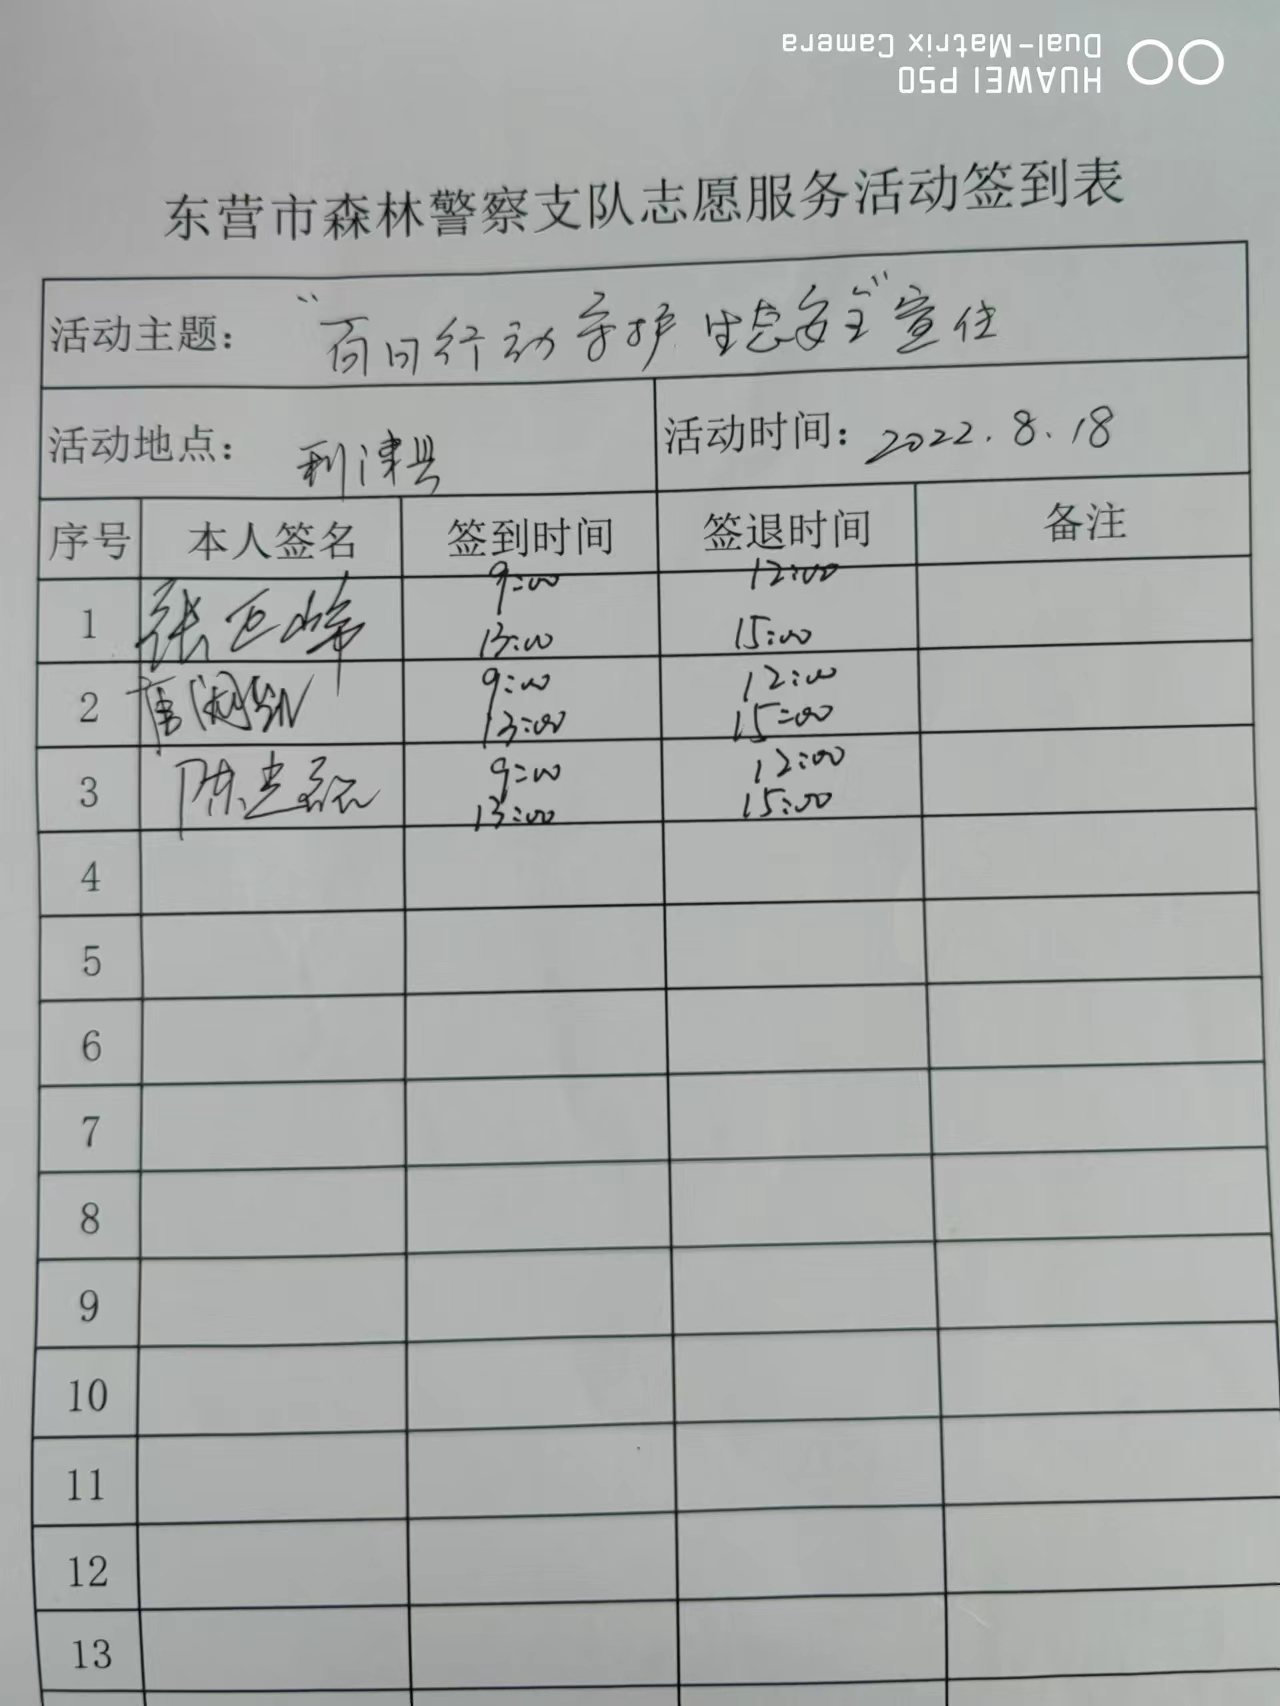 HUAWEI P50
Dual-Matrix Camera
东营市森林警察支队志愿服务活动签到表
活动主题： “百日行动守护生态安全”宣传
活动地点： 利津县 活动时间：2022.8.18
序号 本人签名 签到时间 签退时间 备注
1 张 峰 9:00 12:00
13:00 15:00
2 9:00 12:00
13:00 15:00
3 陈 9:00 12:00
13:00 15:00
4
5
6
7
8
9
10
11
12
13